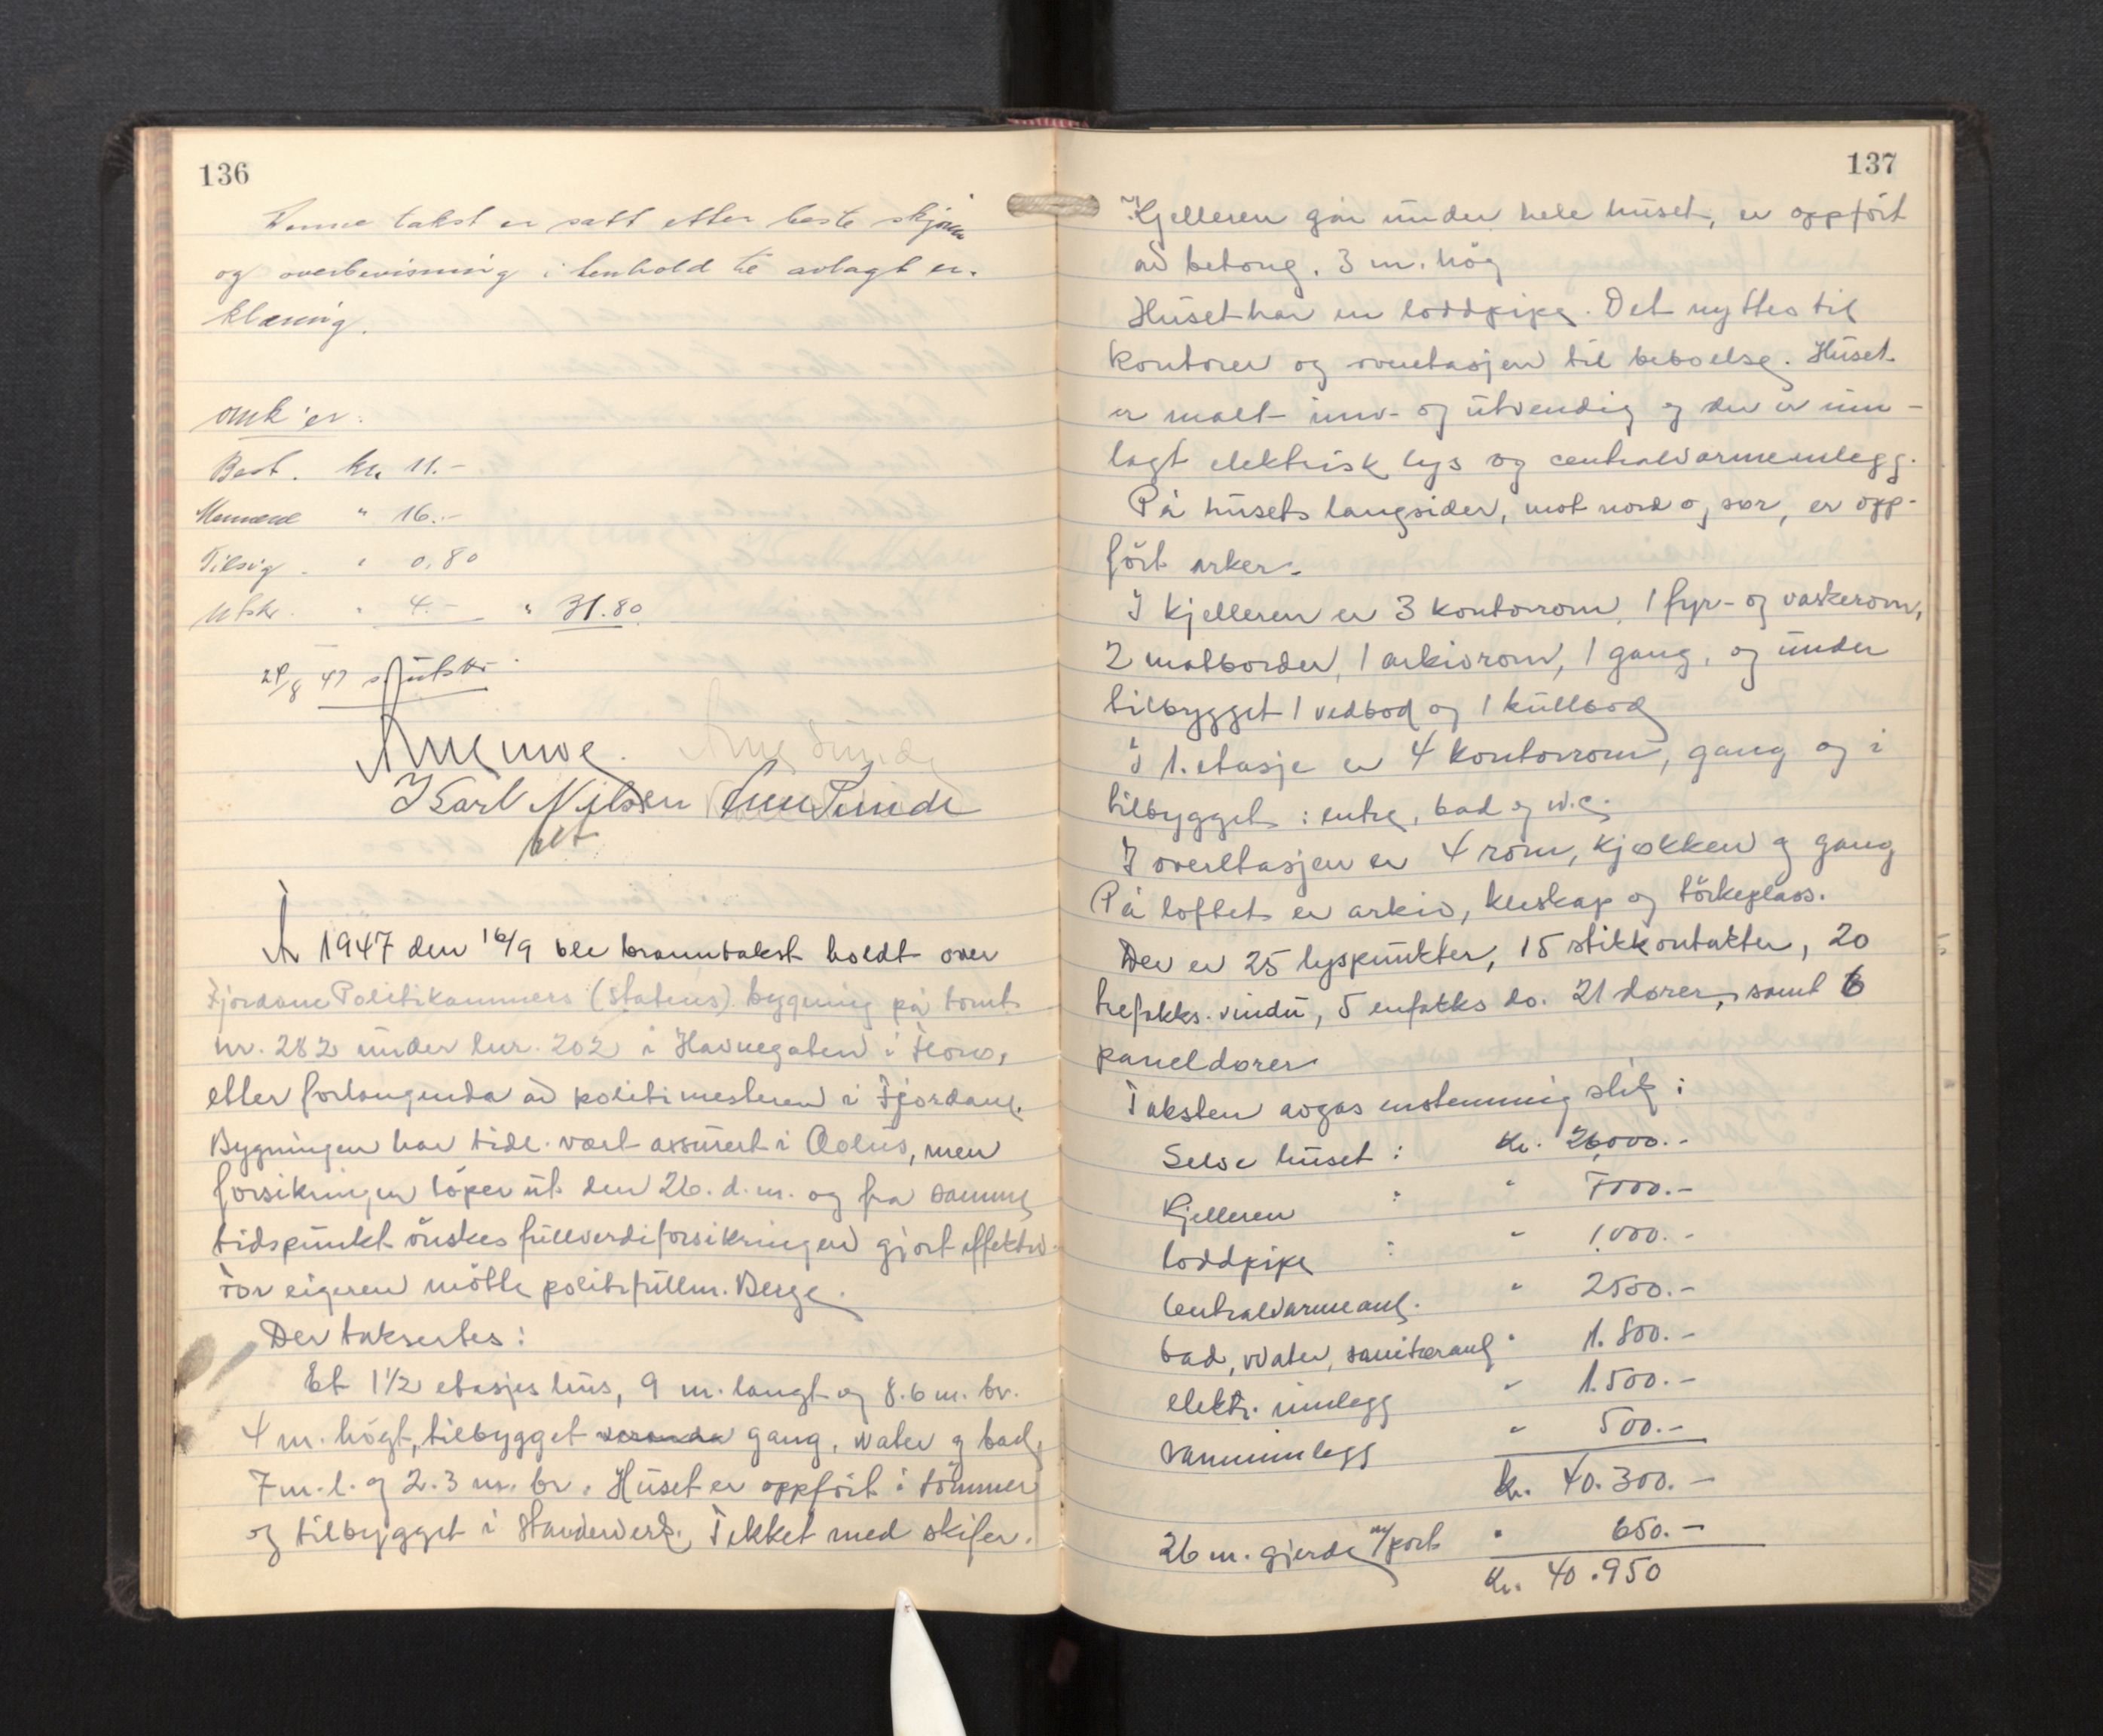 136
Denne takst er satt etter beste skjønn
og overbevisning i henhold til avlagt er-
klæring.
omk'er:
Best. kr. 11.-
Mennene " 16.-
Tilsig. " 0.80
Utskr. " 4.- " 31.80
47 utskr.
Karl Nilsen Arne Sunde
År 1947 den 16/9 ble branntakst holdt over
Fjordane Politikammers (statens) bygning på tomt
nr. 282 under lnr. 202 i Havnegaten i Florø,
etter forlangenda av politimesteren i Fjordane.
Bygningen har tidl. vært assurert i Æolus, men
forsikringen løper ut den 26. d.m. og fra samme
tidspunkt ønskes fullverdiforsikringen gjort effektiv.
For eigeren møtte politifullm. Berge.
Der taksertes:
Et 1½ etasjes hus, 9 m. langt og 8.6 m. br.
4 m. högt, tilbygget veranda gang, water og bad,
7 m. l. og 2.3 m. br. Huset er oppført i tømmer
og tilbygget i stenderverk. Tekket med skifer.
137
Kjelleren går under hele huset, er oppført
av betong. 3 m. høg
Huset har en loddpipe. Det nyttes til
kontorer og overetasjen til beboelse. Huset
er malt inn- og utvendig og der er inn-
lagt elektrisk lys og centralvarmeinlegg.
På husets langsider, mot nord og sør, er opp-
ført arker.
I kjelleren er 3 kontorrom, 1 fyr- og vaskerom,
2 matboder, 1 arkivrom, 1 gang, og under
tilbygget 1 vedbod og 1 kullbod
I 1. etasje er 4 kontorrom, gang og i
tilbygget: entre, bad og w.c.
I overetasjen er 4 rom, kjøkken og gang
På loftet er arkiv, kleskap og tørkeplass.
Der er 25 lyspunkter, 15 stikkontakter, 20
trefakks. vindu, 5 enfakks do. 21 dører, samt 6
paneldører.
Taksten avgas enstemmig slik:
Selve huset: kr. 26,000.-
Kjelleren : " 7000.-
loddpipe : " 1.000.-
Centralvarmeanl. " 2500.-
bad, water, sanitæranl. " 1.800.-
elektr. innlegg " 1.500.-
vanninnlegg " 500.-
kr. 40.300.-
26 m. gjerde m/port " 650.-
kr. 40.950